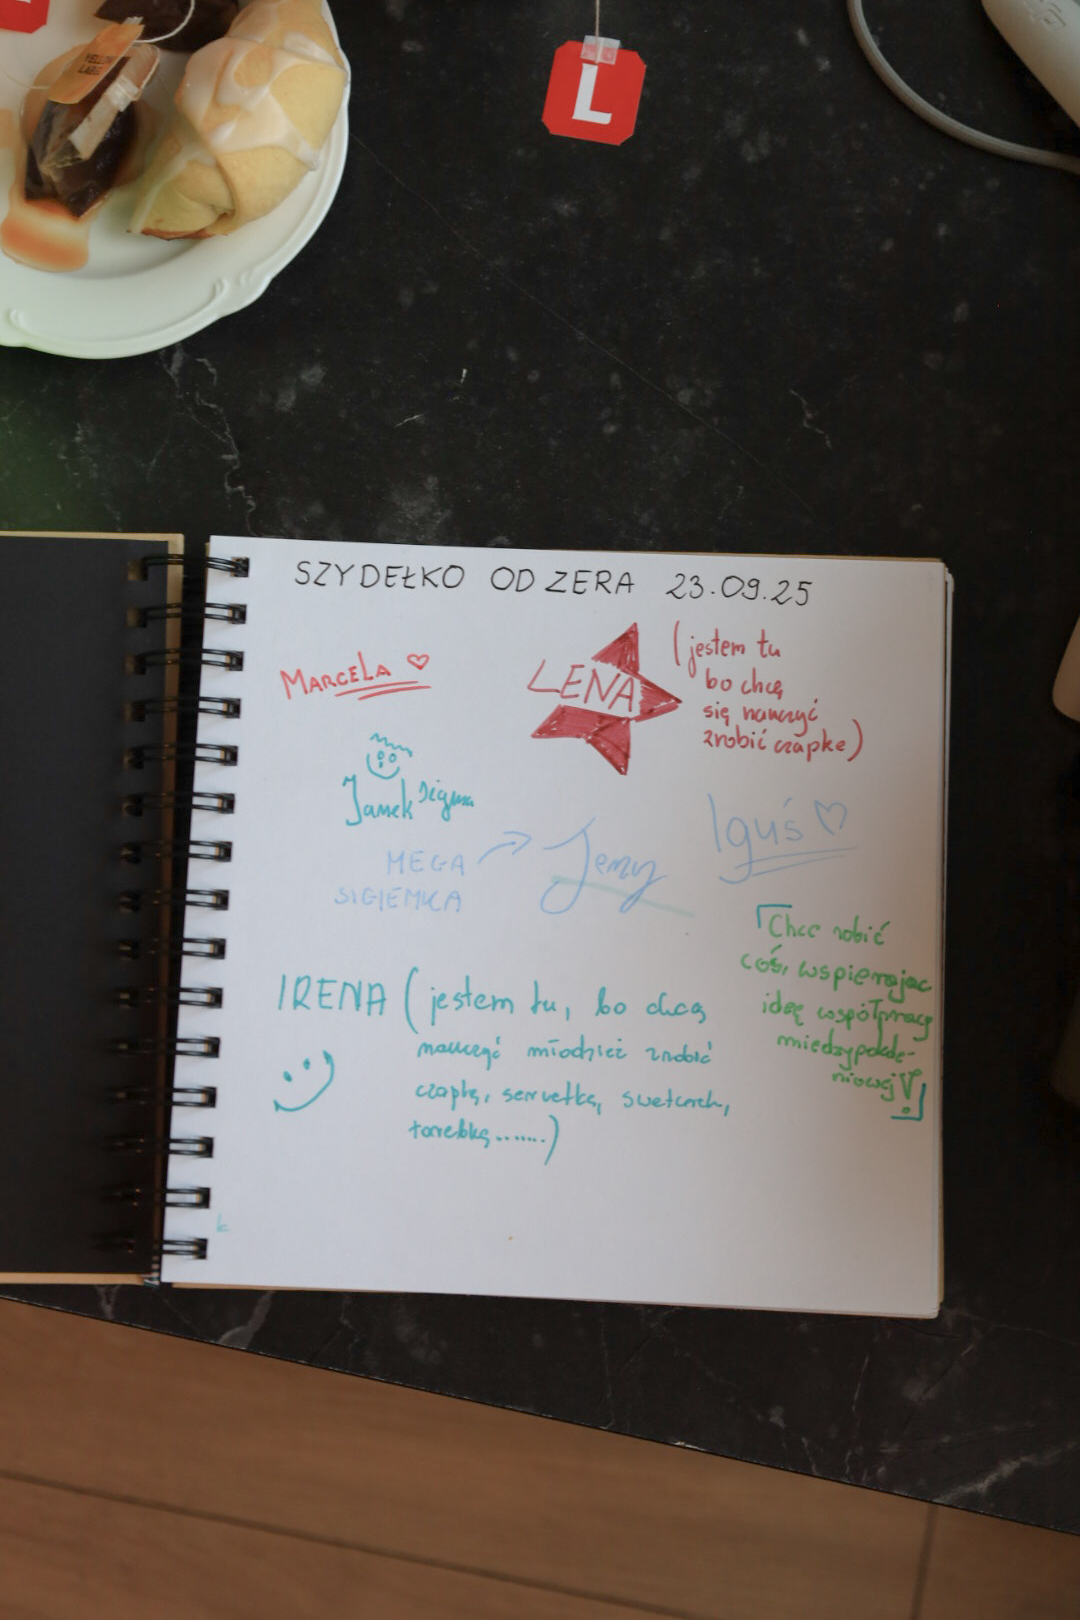 YELLOW
LABEL
L
SZYDEŁKO OD ZERA 23.09.25
MARCELA
LENA
(jestem tu
bo chcę
się nauczyć
zrobić czapke)
Janek Sigma
Iguś
MEGA
SIGIEMKA
Jerzy
Chcę robić
coś, wspierając
ideę współpracy
międzypokole-
niowej!
IRENA (jestem tu, bo chcę
nauczyć młodzież zrobić
czapkę, serwetkę, sweterek,
torebkę.......)